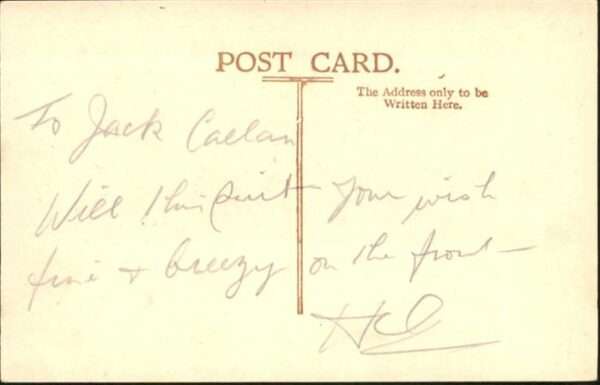 POST CARD.
The Address only to be
Written Here.
To Jack Caelan
Will this suit your wish
fine & breezy on the front